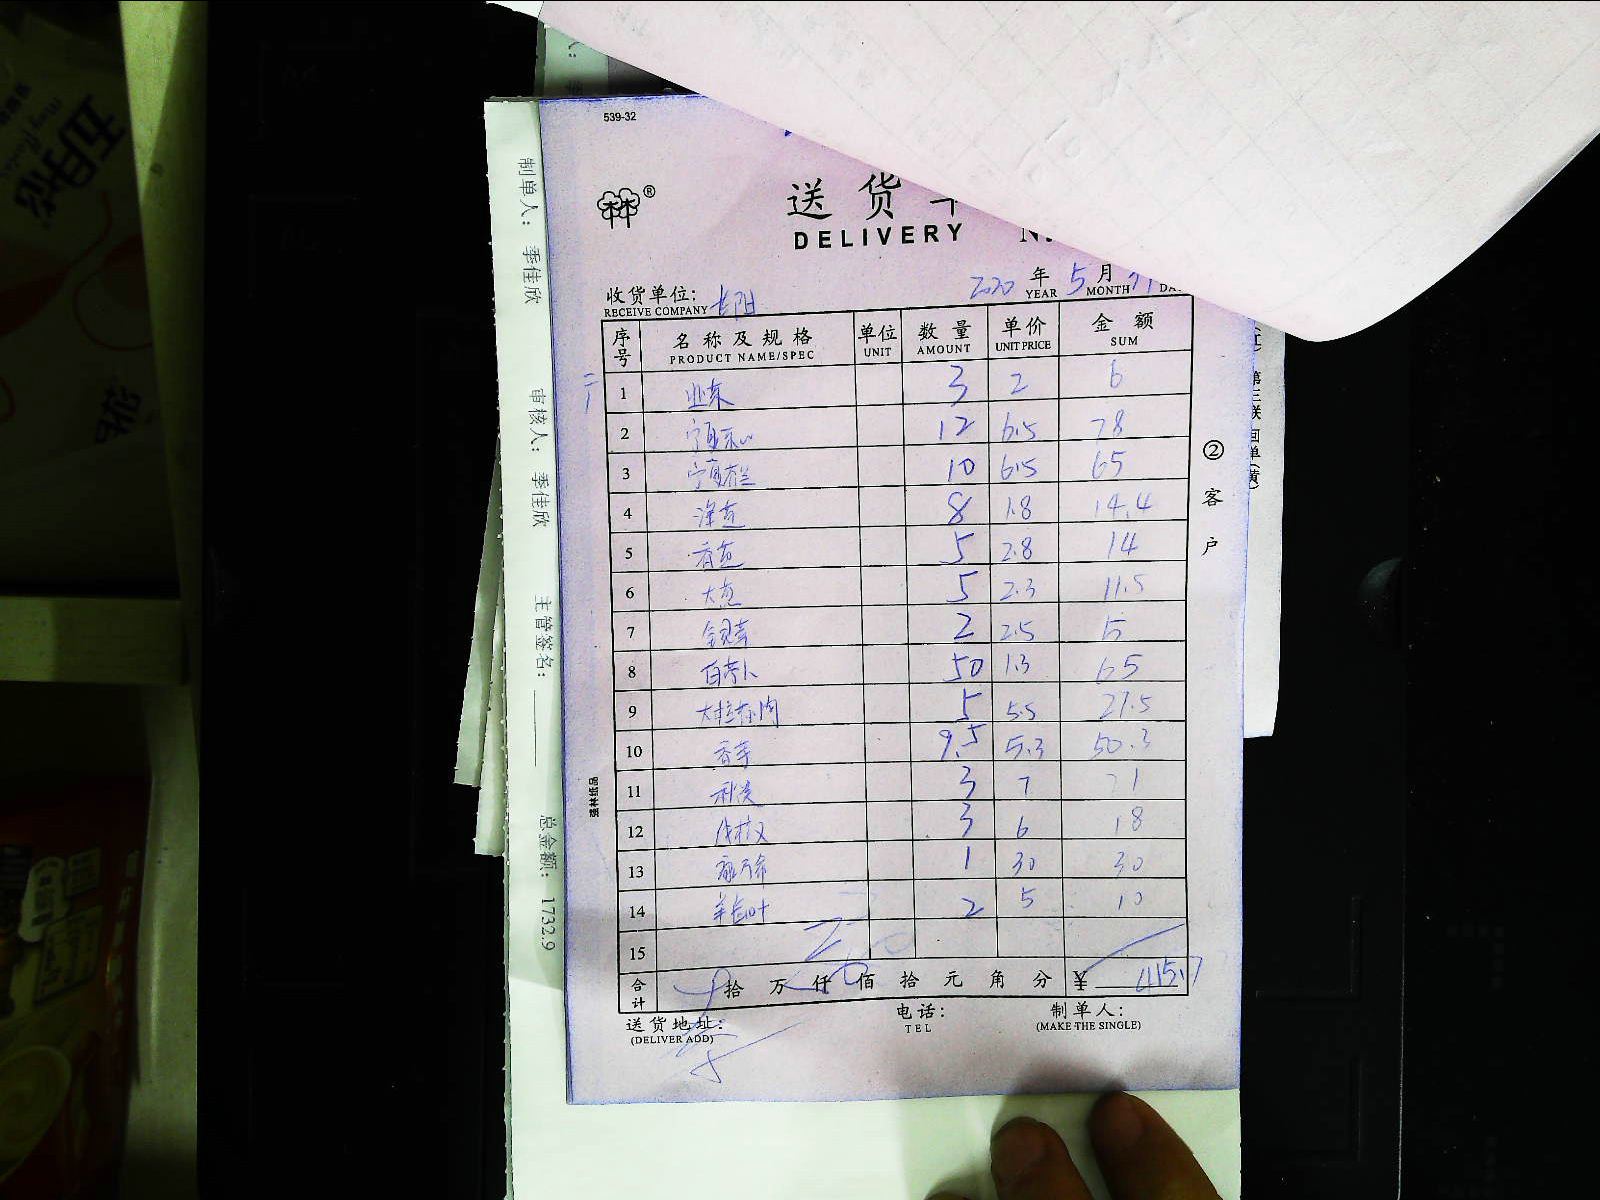 539-32
送货
DELIVERY
收货单位: 长阳 2020 年 5 月
RECEIVE COMPANY YEAR MONTH
序号 名称及规格 单位 数量 单价 金额
PRODUCT NAME/SPEC UNIT AMOUNT UNIT PRICE SUM
1 3 2 6
2 宁夏菜心 12 6.5 78
3 宁夏芥兰 10 6.5 65
4 洋葱 8 1.8 14.4
5 香葱 5 2.8 14
6 大葱 5 2.3 11.5
7 2 2.5 5
8 白萝卜 50 1.3 65
9 5 5.5 27.5
10 香芋 9.5 5.3 50.3
11 3 7 21
12 3 6 18
13 1 30 30
14 2 5 10
15
合计 拾 万 仟 佰 拾 元 角 分 ¥ 415.7
送货地址: 电话: 制单人:
(DELIVER ADD) TEL (MAKE THE SINGLE)
② 客户
森林纸品
制单人: 季佳欣 审核人: 季佳欣 主管签名: 总金额: 1732.9
第三联 回单(黄)
五月花